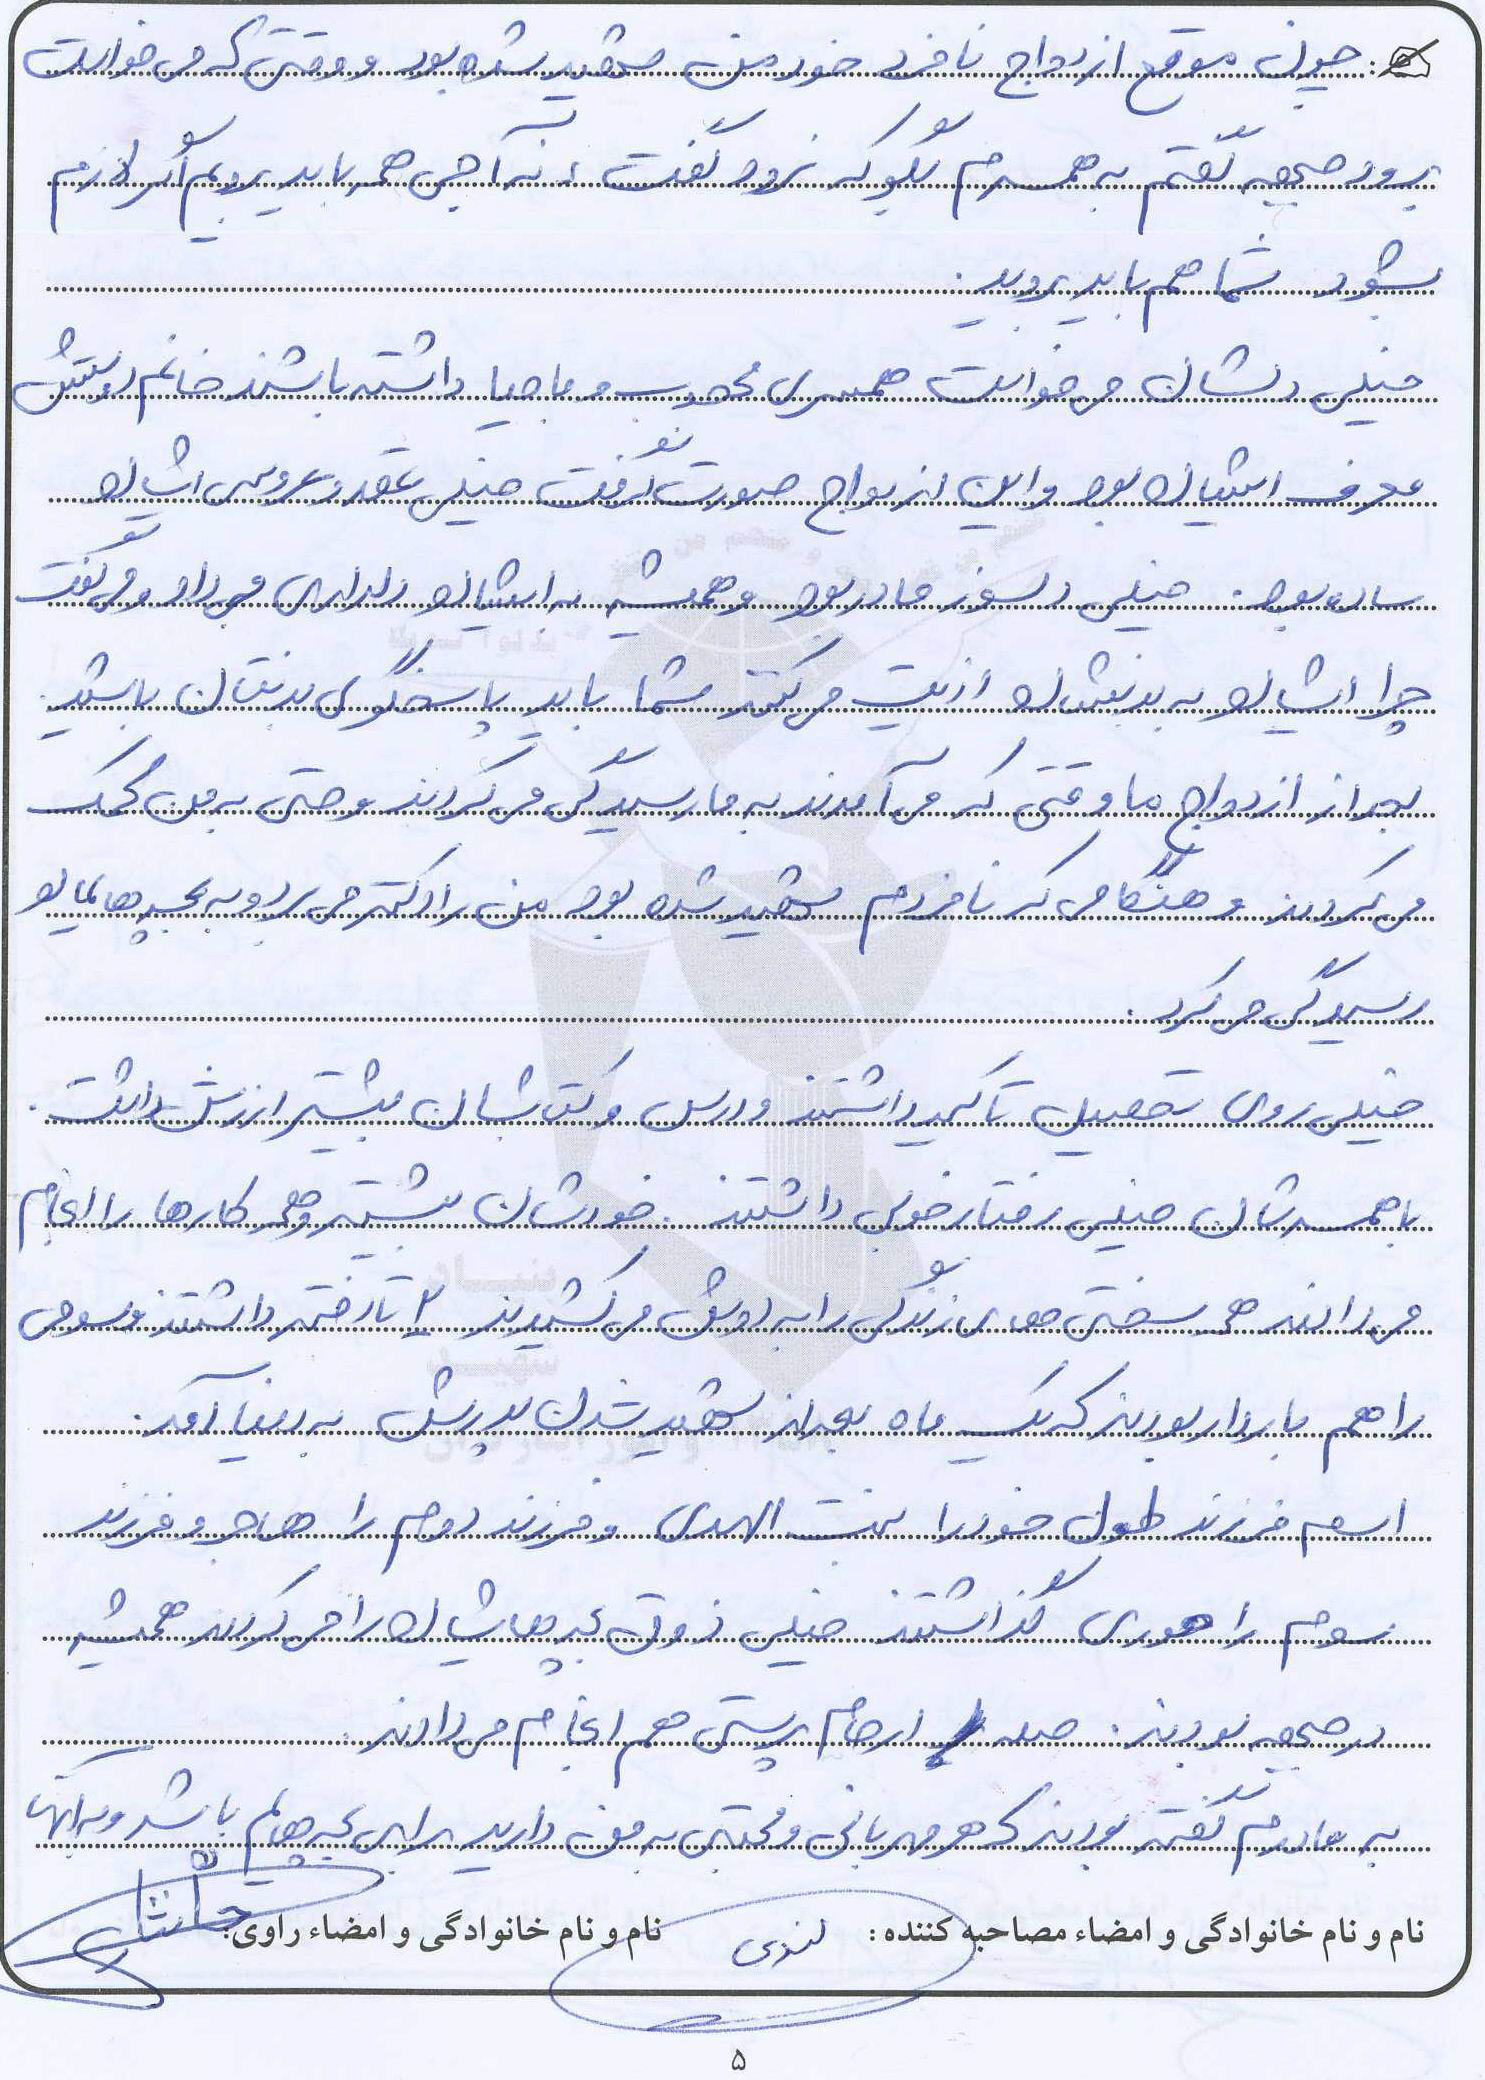 چون موقع ازدواج نامزد خود من شهید شده بود و وقتی که می خواست
برود جبهه گفتم به همسرم بگو که نرود گفت ، نه آجی همه باید برویم اگر لازم
بشود شما هم باید بروید .
خیلی دلشان می خواست همسری محجوب و با حیا داشته باشند خانم دوستش
معرف ایشان بود و این ازدواج صورت گرفت خیلی عقد و عروسی ایشان
ساده بود . خیلی دلسوز مادر بود و همیشه به ایشان دلداری می داد و می گفت
چرا ایشان به بدنشان اذیت می کنند شما باید پاسخگوی بدنتان باشید .
بعد از ازدواج ما وقتی که می آمدند به ما رسیدگی می کردند و حتی به من کمک
می کردند و هنگامی که نامزدم شهید شده بود من را دکتر می برد و به بچه هایمان
رسیدگی می کرد .
خیلی روی تحصیل تاکید داشتند و درس و کتابشان بیشتر ارزش داشت .
با همسرشان خیلی رفتار خوبی داشتند . خودشان بیشتر وهمه کارها را انجام
می دادند همه سختی های زندگی را به دوش می کشیدند ۲ تا دختر داشتند و سومی
را هم باردار بودند که یک ماه بعد از شهید شدن پدرش به دنیا آمد .
اسم فرزند اول خود را بنت الهدی و فرزند دوم را هاجر و فرزند
سوم را حوری گذاشتند خیلی ذوق بچه هاشان را می کردند همیشه
در جبهه بودند . صله ارحام پرستی هم انجام می دادند .
به مادرم گفته بودند که هر مهربانی و محبتی به من دارید برای بچه هایم باشد و به آنها
نام و نام خانوادگی و امضاء مصاحبه کننده : نام و نام خانوادگی و امضاء راوی:
۵